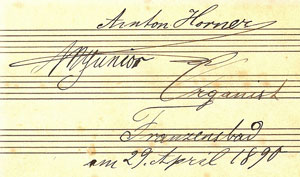 Anton Horner
Junior
Organist
Franzensbad
am 29. April 1890